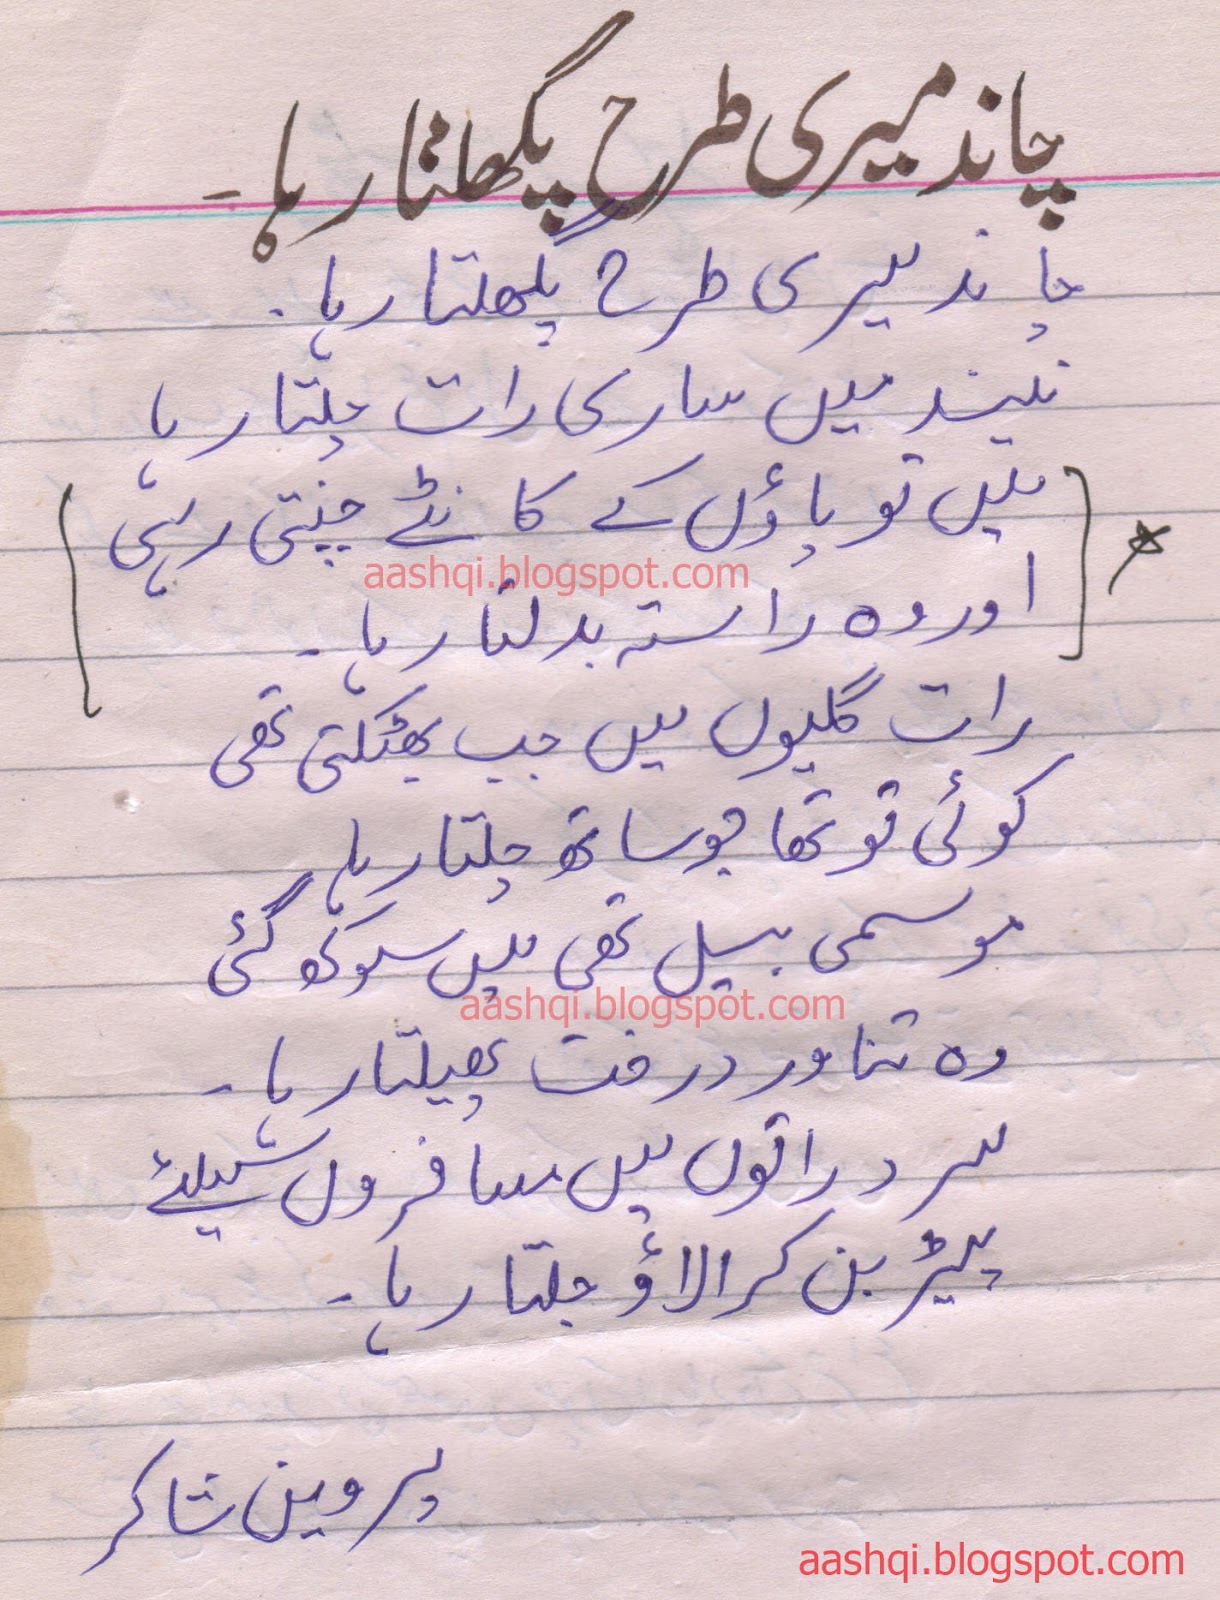 چاند میری طرح پگھلتا رہا۔
چاند میری طرح پگھلتا رہا۔
نیند میں ساری رات چلتا رہا
میں تو پاؤں کے کانٹے چنتی رہی
aashqi.blogspot.com
اور وہ راستہ بدلتا رہا۔
رات گلیوں میں جب بھٹکتی تھی
کوئی تو تھا جو ساتھ چلتا رہا
موسمی بیل تھی میں سوکھ گئی
aashqi.blogspot.com
وہ تناور درخت پھیلتا رہا۔
سرد راتوں میں مسافروں کیلئے
پیڑ بن کر الاؤ جلتا رہا۔
پروین شاکر
aashqi.blogspot.com